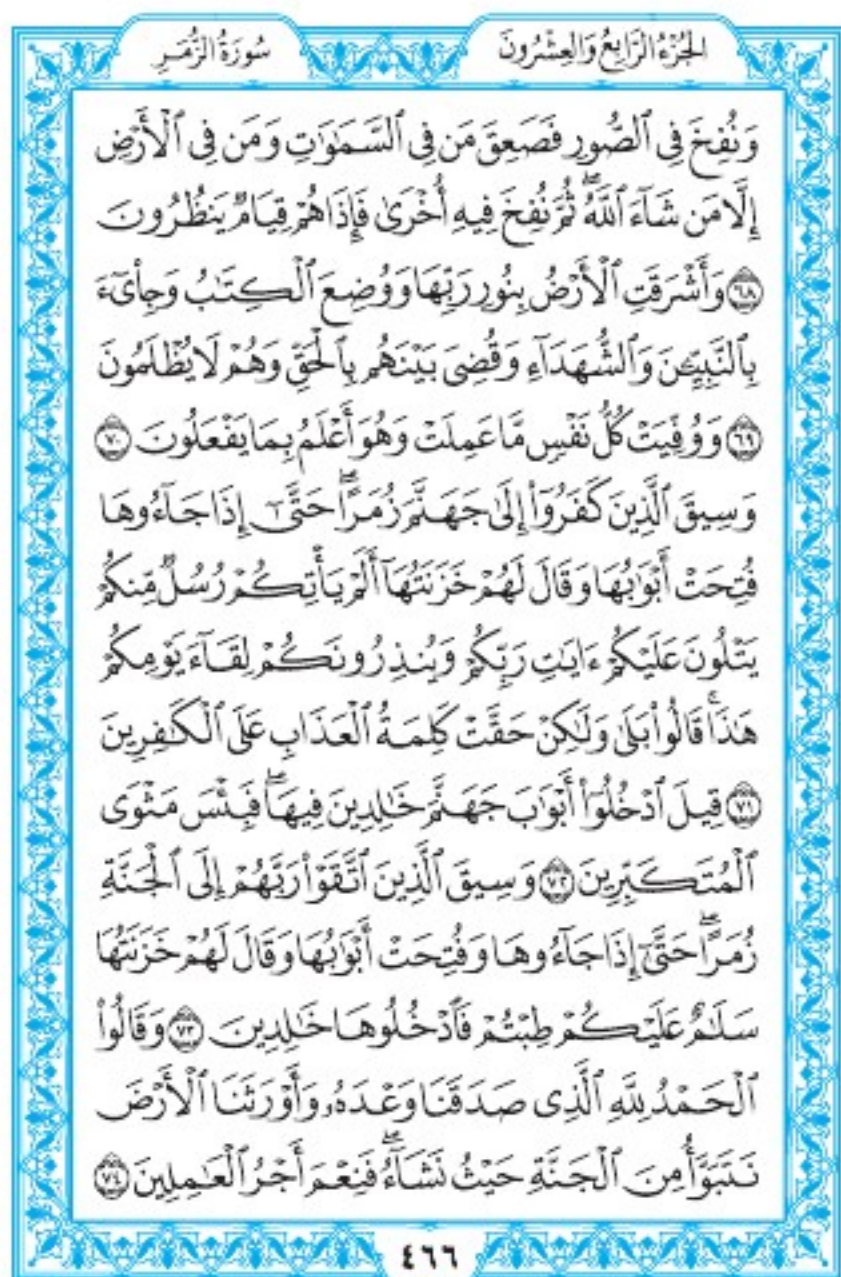 الجُزْءُ الرَّابِعُ وَالعِشْرُونَ
سُورَةُ الزُّمَرِ
وَنُفِخَ فِى ٱلصُّورِ فَصَعِقَ مَن فِى ٱلسَّمَـٰوَٰتِ وَمَن فِى ٱلْأَرْضِ
إِلَّا مَن شَآءَ ٱللَّهُ ۖ ثُمَّ نُفِخَ فِيهِ أُخْرَىٰ فَإِذَا هُمْ قِيَامٌ يَنظُرُونَ
﴿٦٨﴾ وَأَشْرَقَتِ ٱلْأَرْضُ بِنُورِ رَبِّهَا وَوُضِعَ ٱلْكِتَـٰبُ وَجِا۟ىٓءَ
بِٱلنَّبِيِّـۧنَ وَٱلشُّهَدَآءِ وَقُضِىَ بَيْنَهُم بِٱلْحَقِّ وَهُمْ لَا يُظْلَمُونَ
﴿٦٩﴾ وَوُفِّيَتْ كُلُّ نَفْسٍ مَّا عَمِلَتْ وَهُوَ أَعْلَمُ بِمَا يَفْعَلُونَ ﴿٧٠﴾
وَسِيقَ ٱلَّذِينَ كَفَرُوٓا۟ إِلَىٰ جَهَنَّمَ زُمَرًا ۖ حَتَّىٰٓ إِذَا جَآءُوهَا
فُتِحَتْ أَبْوَٰبُهَا وَقَالَ لَهُمْ خَزَنَتُهَآ أَلَمْ يَأْتِكُمْ رُسُلٌ مِّنكُمْ
يَتْلُونَ عَلَيْكُمْ ءَايَـٰتِ رَبِّكُمْ وَيُنذِرُونَكُمْ لِقَآءَ يَوْمِكُمْ
هَـٰذَا ۚ قَالُوا۟ بَلَىٰ وَلَـٰكِنْ حَقَّتْ كَلِمَةُ ٱلْعَذَابِ عَلَى ٱلْكَـٰفِرِينَ
﴿٧١﴾ قِيلَ ٱدْخُلُوٓا۟ أَبْوَٰبَ جَهَنَّمَ خَـٰلِدِينَ فِيهَا ۖ فَبِئْسَ مَثْوَى
ٱلْمُتَكَبِّرِينَ ﴿٧٢﴾ وَسِيقَ ٱلَّذِينَ ٱتَّقَوْا۟ رَبَّهُمْ إِلَى ٱلْجَنَّةِ
زُمَرًا ۖ حَتَّىٰٓ إِذَا جَآءُوهَا وَفُتِحَتْ أَبْوَٰبُهَا وَقَالَ لَهُمْ خَزَنَتُهَا
سَلَـٰمٌ عَلَيْكُمْ طِبْتُمْ فَٱدْخُلُوهَا خَـٰلِدِينَ ﴿٧٣﴾ وَقَالُوا۟
ٱلْحَمْدُ لِلَّهِ ٱلَّذِى صَدَقَنَا وَعْدَهُۥ وَأَوْرَثَنَا ٱلْأَرْضَ
نَتَبَوَّأُ مِنَ ٱلْجَنَّةِ حَيْثُ نَشَآءُ ۖ فَنِعْمَ أَجْرُ ٱلْعَـٰمِلِينَ ﴿٧٤﴾
٤٦٦